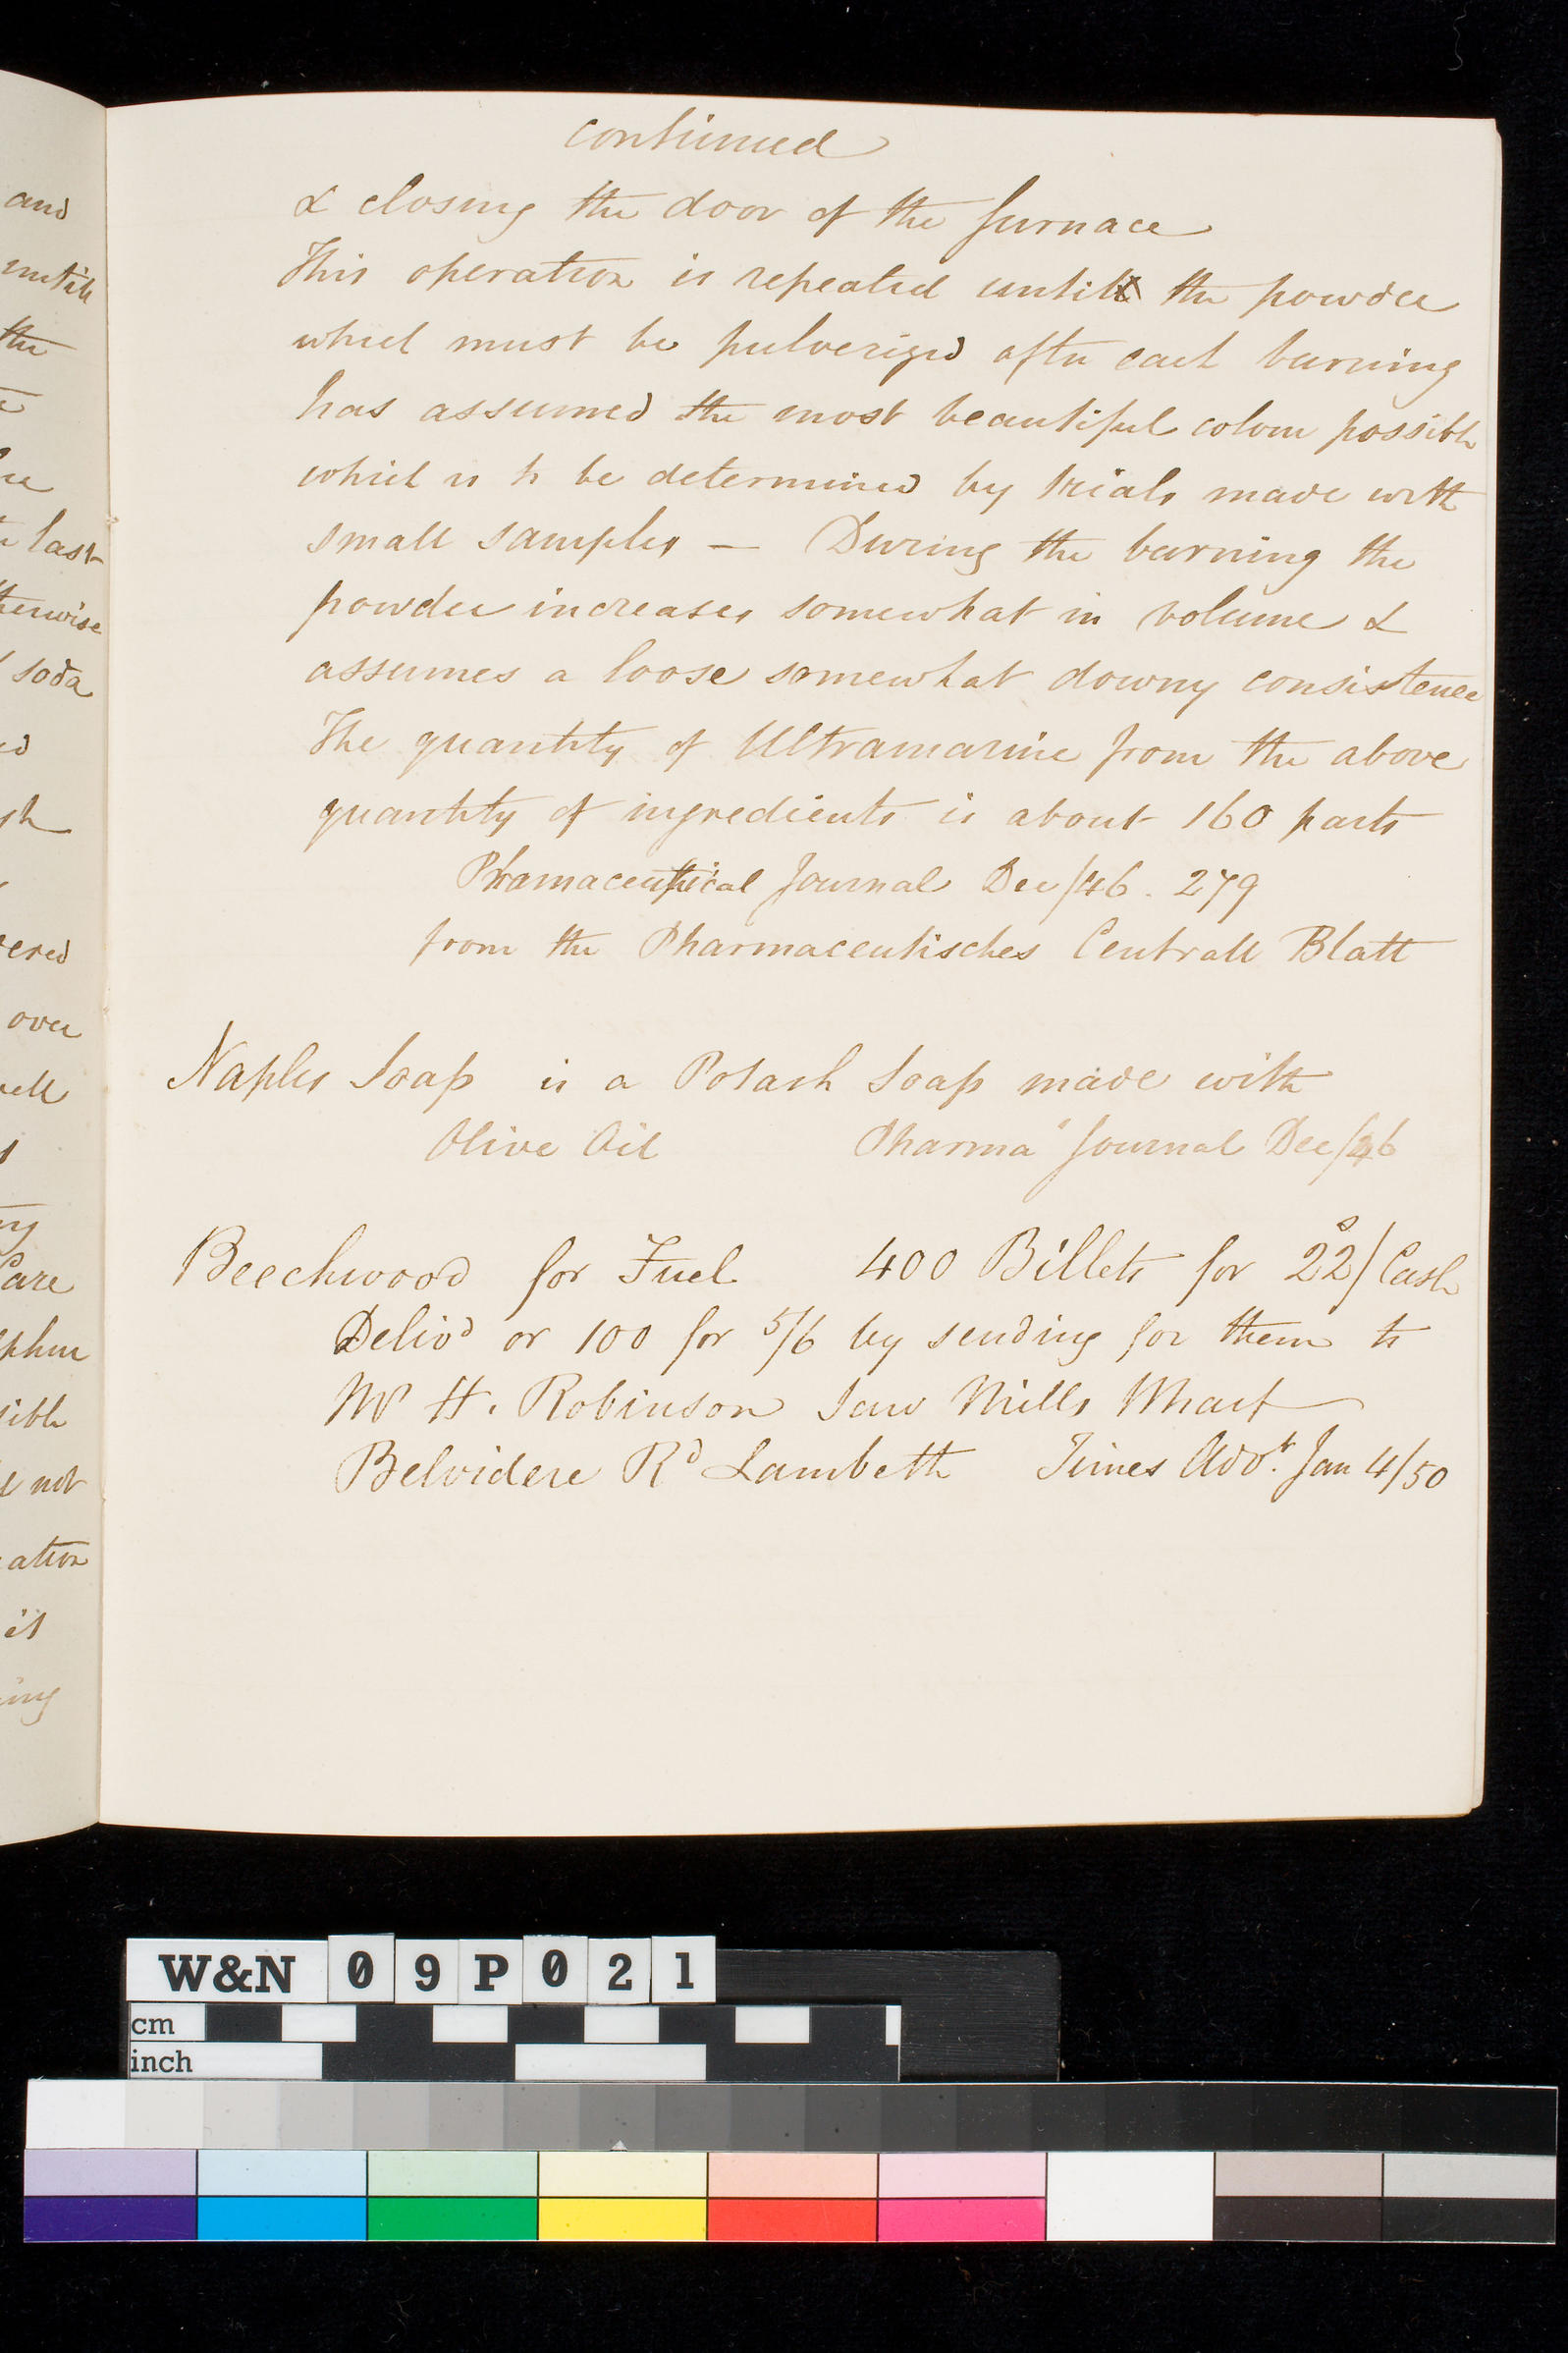 continued
& closing the door of the furnace
This operation is repeated until the powder
which must be pulverized after each burning
has assumed the most beautiful colour possible
which is to be determined by trials made with
small samples — During the burning the
powder increases somewhat in volume &
assumes a loose somewhat downy consistence
The quantity of Ultramarine from the above
quantity of ingredients is about 160 parts
Pharmaceutical Journal Dec/46. 279
from the Pharmaceutisches Centrall Blatt
Naples Soap is a Potash Soap made with
Olive Oil Pharma" Journal Dec/46
Beechwood for Fuel 400 Billets for 22s/ Cash
Delivd or 100 for 5/6 by sending for them to
Mr H. Robinson Saw Mills Wharf
Belvidere Rd Lambeth Times Advt. Jan 4/50
and
untill
the
last
therwise
soda
ered
over
Care
sible
not
ation
it
ing
W&N 09P021
cm
inch